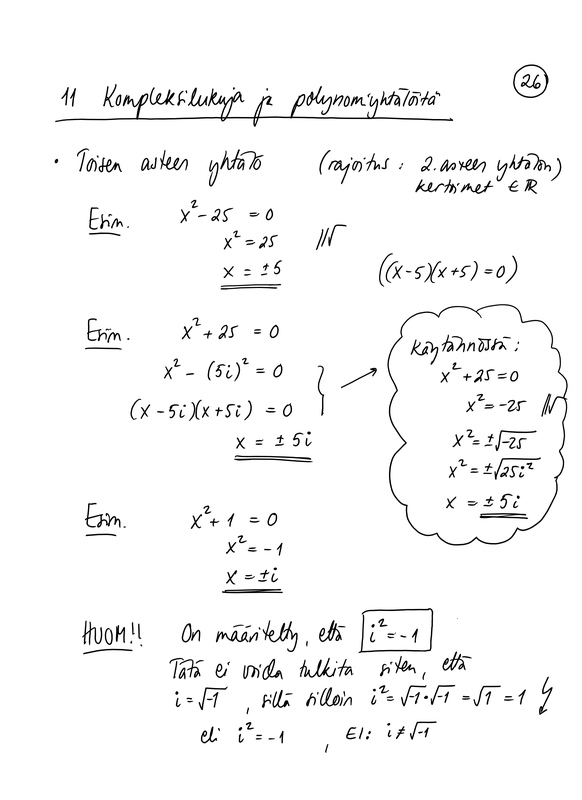 26
11 Kompleksilukuja ja polynomiyhtälöitä
• Toisen asteen yhtälö (rajoitus: 2. asteen yhtälön)
kertoimet ∈ ℝ
Esim. x² - 25 = 0
x² = 25 |√
x = ±5
((x-5)(x+5) = 0)
Esim. x² + 25 = 0
x² - (5i)² = 0
(x - 5i)(x + 5i) = 0
x = ± 5i
Käytännössä:
x² + 25 = 0
x² = -25 |√
x² = ±√-25
x² = ±√25i²
x = ± 5i
Esim. x² + 1 = 0
x² = -1
x = ±i
HUOM!! On määritelty, että i² = -1
Tätä ei voida tulkita siten, että
i = √-1, sillä silloin i² = √-1·√-1 = √1 = 1 ↯
eli i² = -1, EI: i ≠ √-1